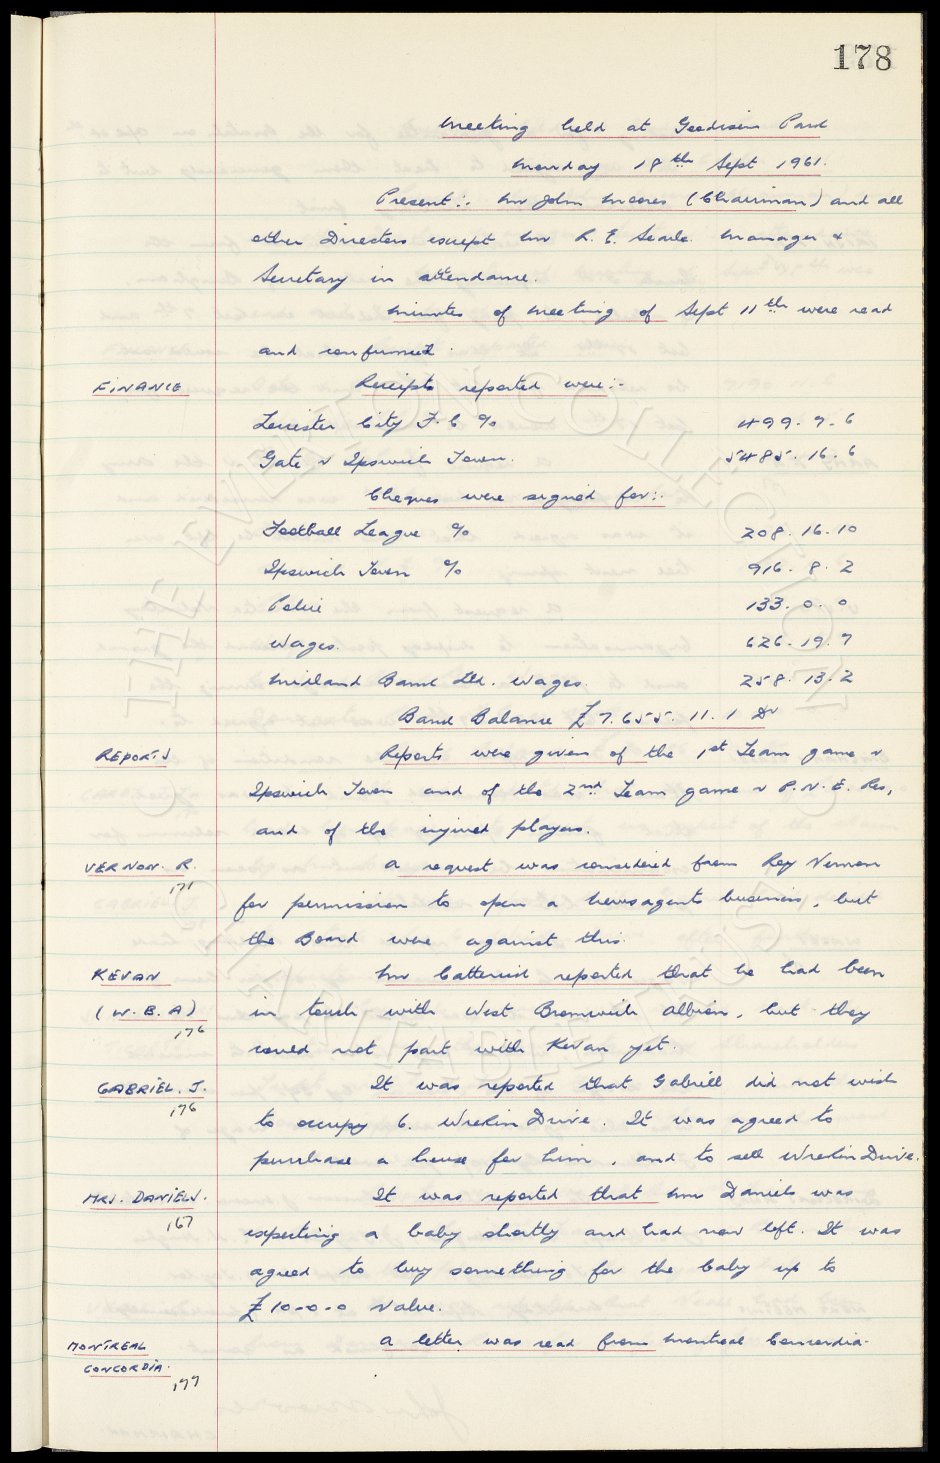 178
Meeting held at Goodison Park
Monday 18th Sept 1961.
Present:- Mr John Moores (Chairman) and all
other Directors except Mr R. E. Searle. Manager &
Secretary in attendance.
Minutes of meeting of Sept 11th were read
and confirmed.
FINANCE Receipts reported were:-
Leicester City F.C % 499. 7. 6
Gate v Ipswich Town. 5485. 16. 6
Cheques were signed for:-
Football League % 208. 16. 10
Ipswich Town % 916. 8. 2
Police 133. 0. 0
Wages. 626. 19. 7
Midland Bank Ltd. Wages. 258. 13. 2
Bank Balance £7.655. 11. 1 Dr
REPORTS Reports were given of the 1st Team game v
Ipswich Town and of the 2nd Team game v P.N.E. Res,
and of the injured players.
VERNON. R. A request was considered from Roy Vernon
171 for permission to open a newsagents business, but
the Board were against this.
KEVAN Mr Catterick reported that he had been
(W.B.A) in touch with West Bromwich Albion, but they
176 could not part with Kevan yet.
GABRIEL. J. It was reported that Gabriel did not wish
176 to occupy 6. Wrekin Drive. It was agreed to
purchase a house for him, and to sell Wrekin Drive.
MRS. DANIELS. It was reported that Mrs Daniels was
167 expecting a baby shortly and had now left. It was
agreed to buy something for the baby up to
£10-0-0 value.
MONTREAL A letter was read from Montreal Concordia-
CONCORDIA.
177